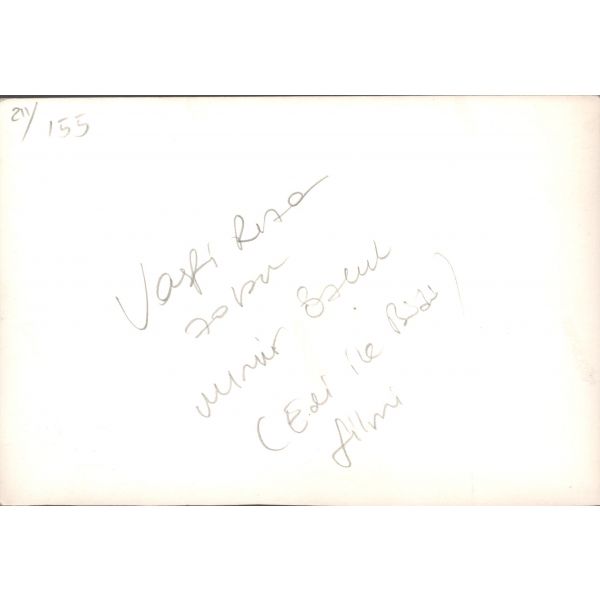 211/155
Vasfi Rıza
Zobu
Münir Özkul
(Edi ile Büdü)
filmi